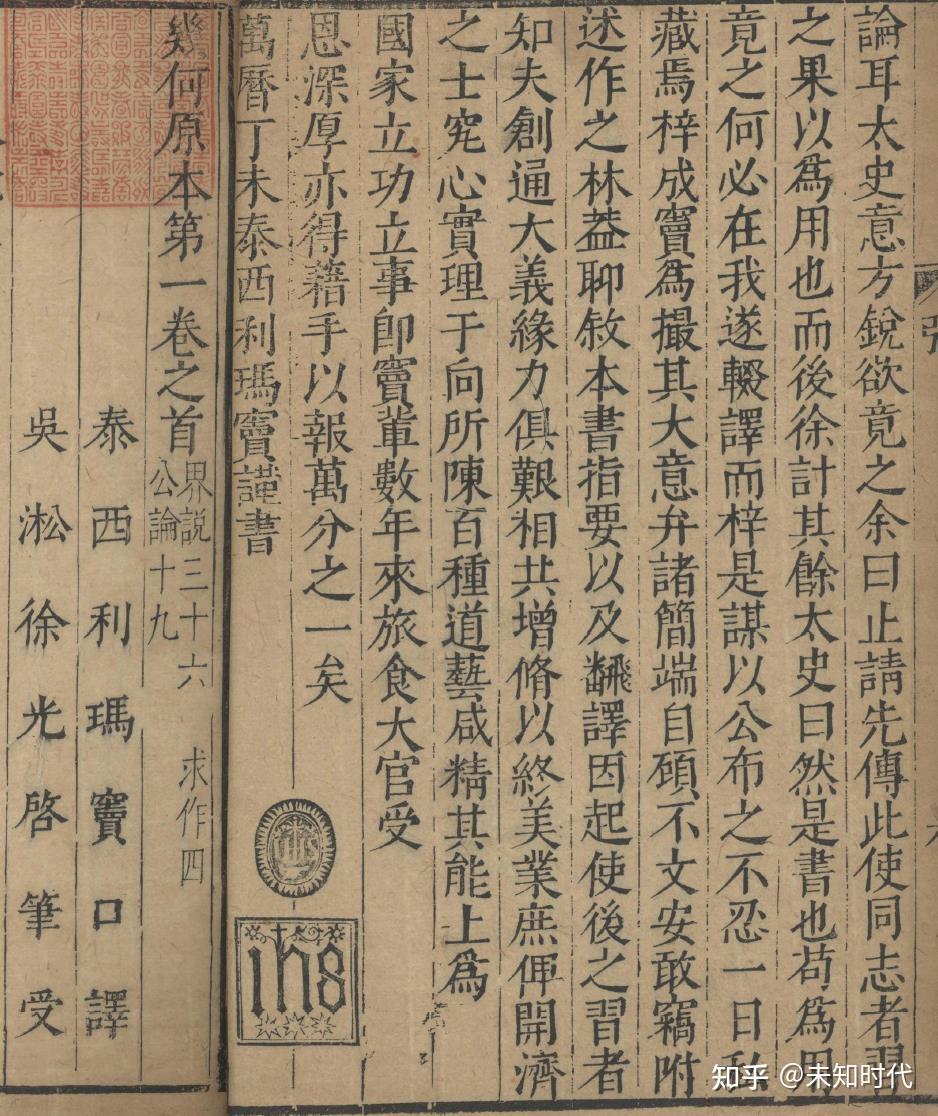 論耳太史意方銳欲竟之余曰止請先傳此使同志者習
之果以為用也而後徐計其餘太史曰然是書也苟為用
竟之何必在我遂輟譯而梓是謀以公布之不忍一日私
藏焉梓成竇為撮其大意弁諸簡端自顧不文安敢竊附
述作之林葢聊敘本書指要以及翻譯因起使後之習者
知夫創通大義緣力俱艱相共增脩以終美業庶俾開濟
之士究心實理于向所陳百種道藝咸精其能上為
國家立功立事卽竇輩數年來旅食大官受
恩深厚亦得藉手以報萬分之一矣
萬曆丁未泰西利瑪竇謹書
ihs
幾何原本第一卷之首
界說三十六 求作四
公論十九
泰西利瑪竇口譯
吳淞徐光啓筆受
知乎 @未知时代